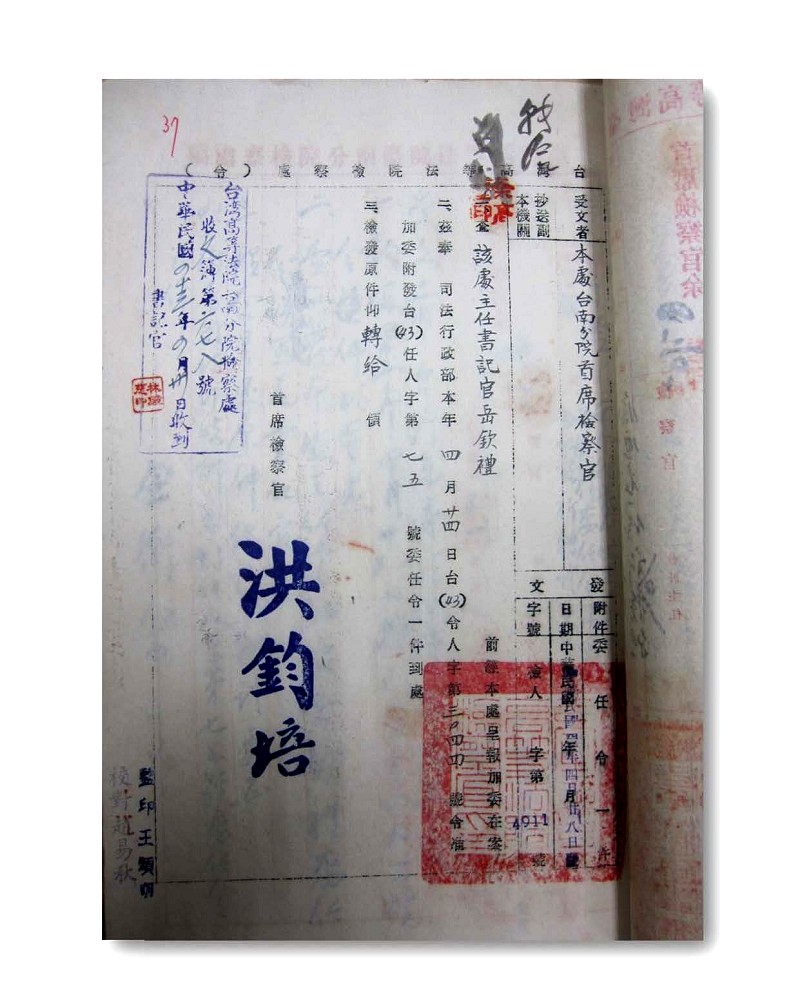 37
台灣高等法院檢察處(令)
受文者
本處台南分院首席檢察官
抄送副
本機關
發
文
附件
委任令一件
日期
中華民國四三年四月廿八日
字號
檢人字第4911號
該處主任書記官岳欽禮
前經本處呈報加委在案
二、茲奉 司法行政部本年四月廿四日台(43)令人字第三〇四四號令准
加委附發台(43)任人字第七五號委任令一件到處
三、檢發原件仰轉給 領
首席檢察官
洪鈞培
台灣高等法院台南分院檢察處
收人簿第二七八號
中華民國四十三年四月卅日收到
書記官
監印王穎明
校對趙易秋